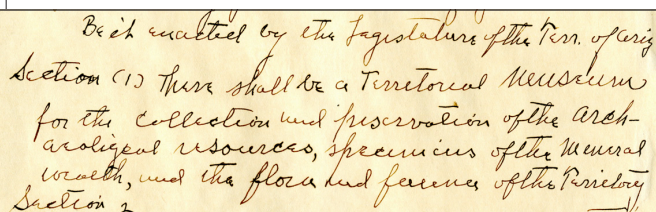 Be it enacted by the Legistature of the Terr. of Ariz
Section (1) There shall be a Territorial Museum
for the collection and preservation of the Arch-
aeoligeal resources, specimens of the Mineral
wealth, and the flora and fauna of the Territory
Section 2